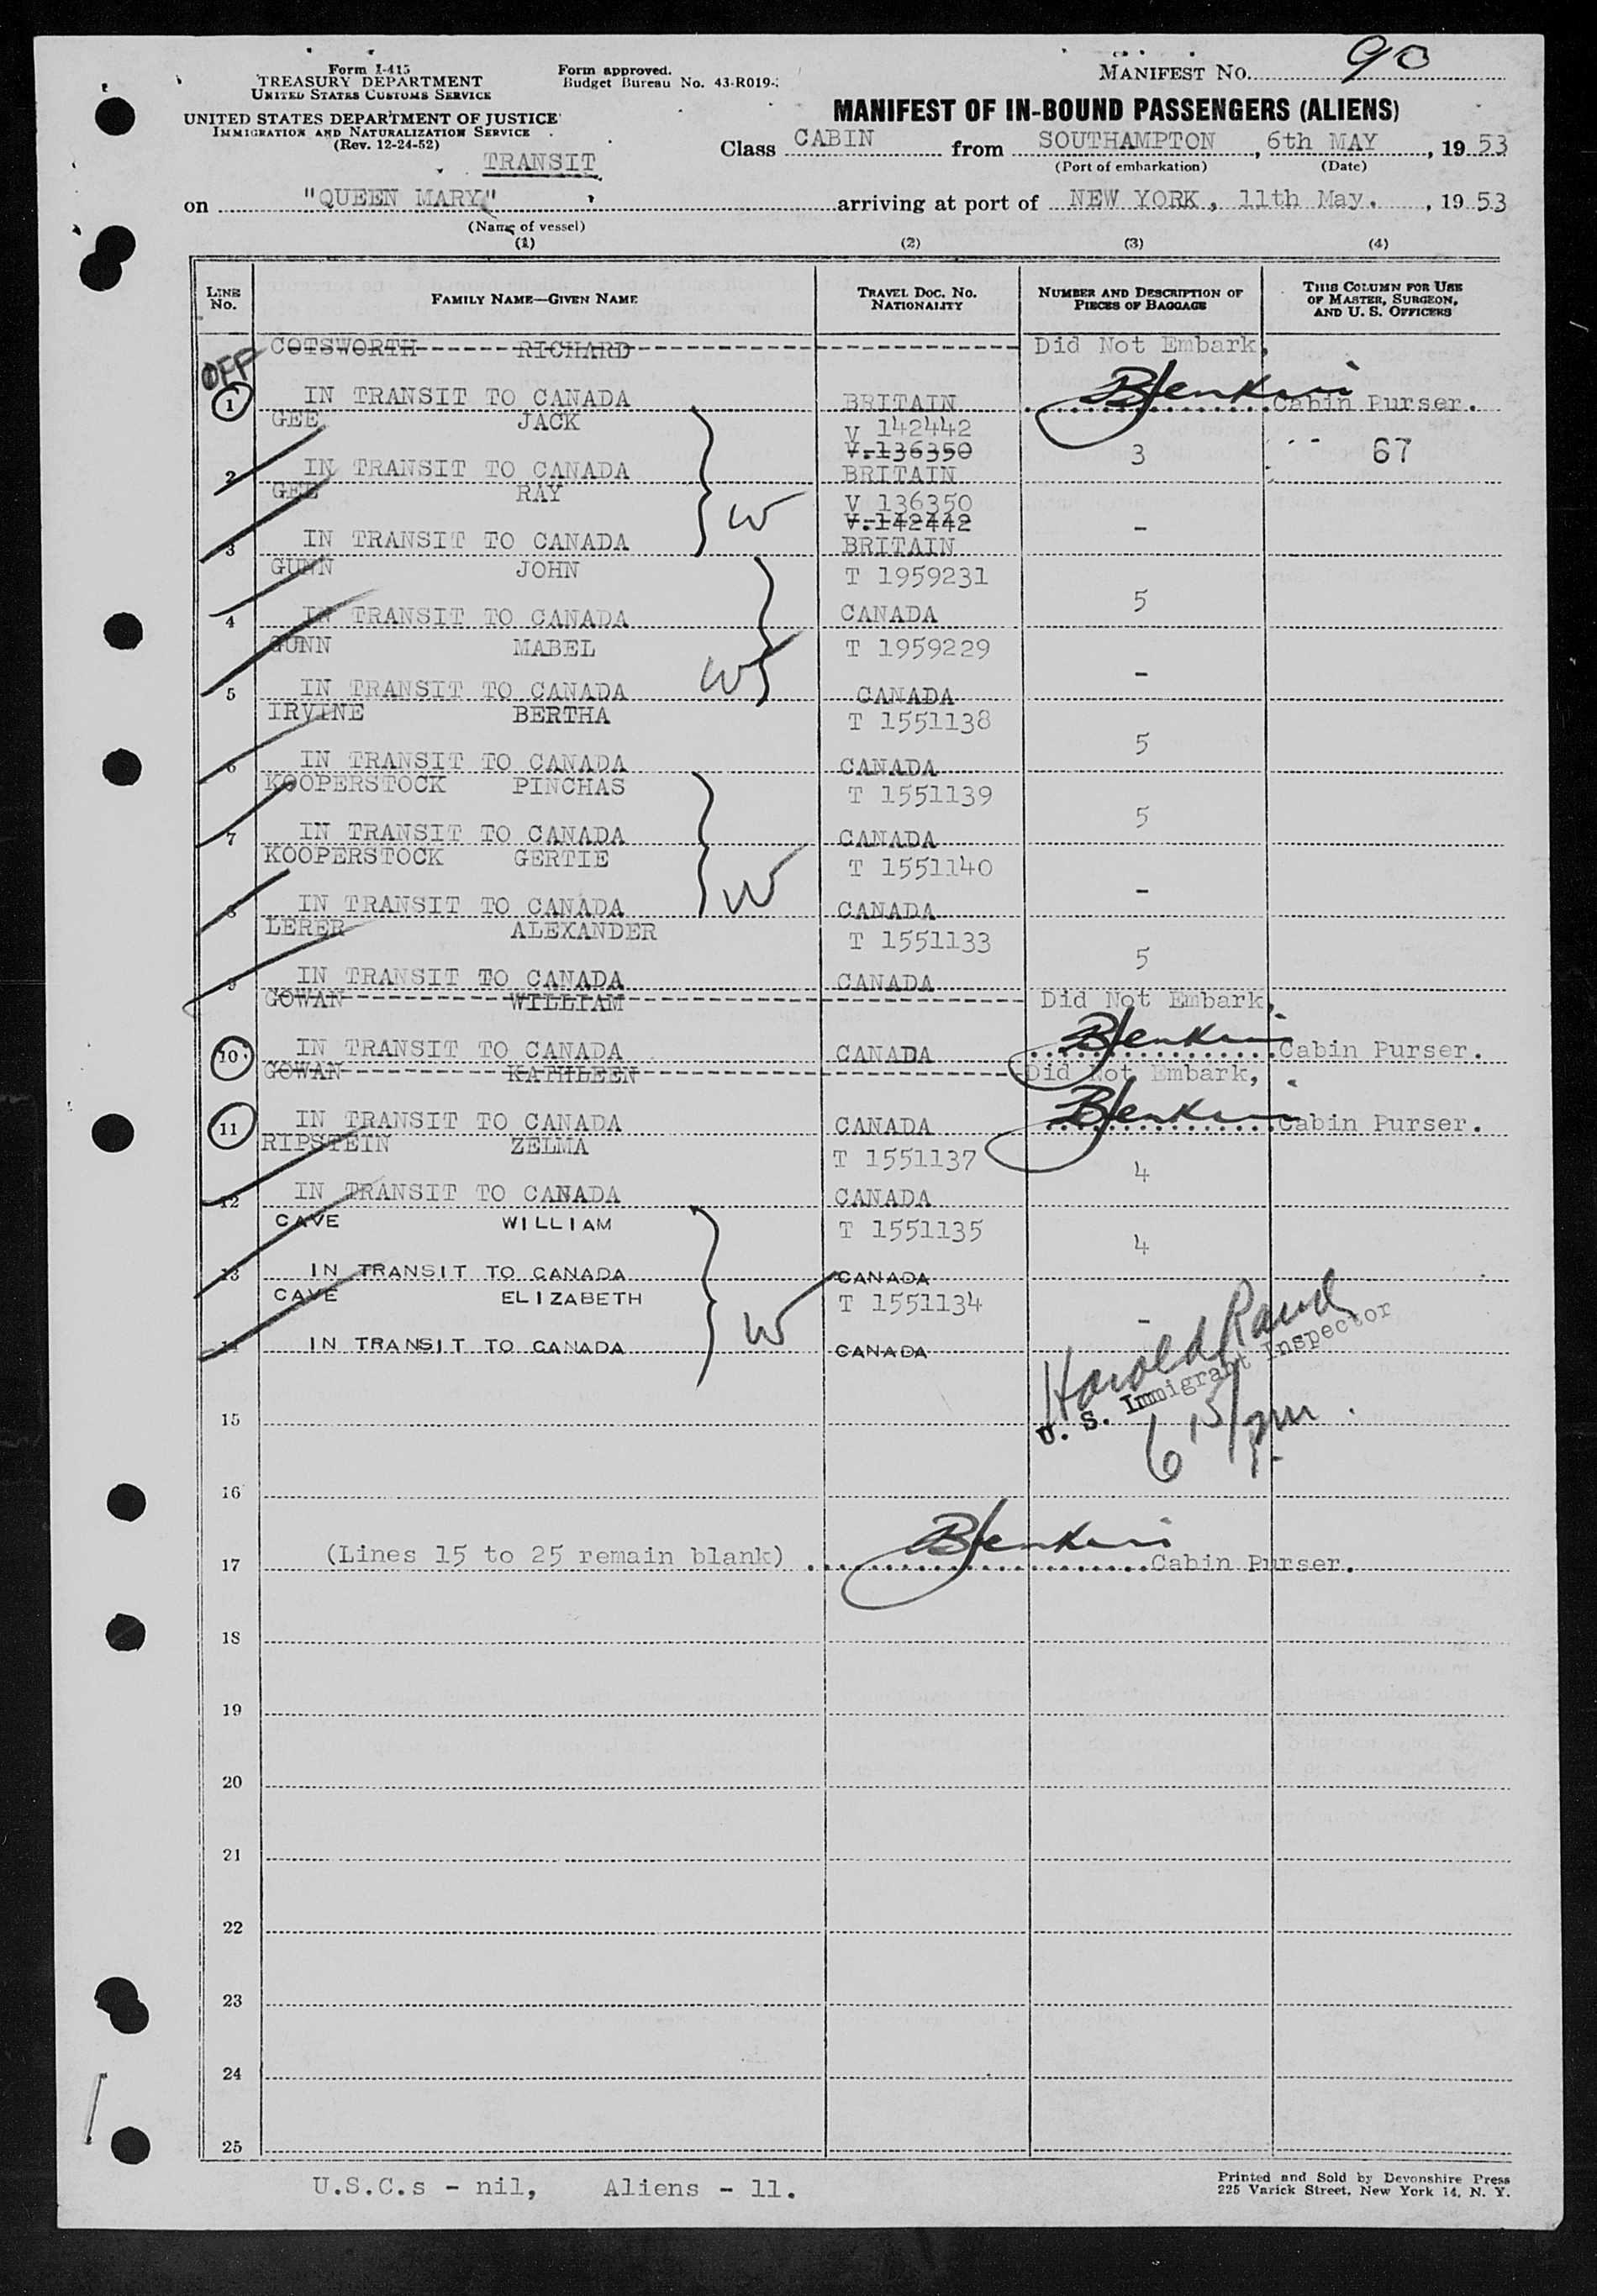 Form I-415
TREASURY DEPARTMENT
UNITED STATES CUSTOMS SERVICE
UNITED STATES DEPARTMENT OF JUSTICE
IMMIGRATION AND NATURALIZATION SERVICE
(Rev. 12-24-52)
Form approved.
Budget Bureau No. 43-R019-
MANIFEST NO. 90
MANIFEST OF IN-BOUND PASSENGERS (ALIENS)
TRANSIT
Class CABIN from SOUTHAMPTON, 6th MAY, 1953
(Port of embarkation) (Date)
on "QUEEN MARY" arriving at port of NEW YORK, 11th May., 1953
(Name of vessel)
(1) (2) (3) (4)
LINE NO. FAMILY NAME—GIVEN NAME TRAVEL DOC. NO. NATIONALITY NUMBER AND DESCRIPTION OF PIECES OF BAGGAGE THIS COLUMN FOR USE OF MASTER, SURGEON, AND U. S. OFFICERS
OFF COTSWORTH RICHARD Did Not Embark,
1 IN TRANSIT TO CANADA BRITAIN BJenkins Cabin Purser.
GEE JACK V 142442
V.136350 3 67
2 IN TRANSIT TO CANADA BRITAIN
GEE RAY V 136350
W V.142442 -
3 IN TRANSIT TO CANADA BRITAIN
GUNN JOHN T 1959231
5
4 IN TRANSIT TO CANADA CANADA
GUNN MABEL T 1959229
W -
5 IN TRANSIT TO CANADA CANADA
IRVINE BERTHA T 1551138
5
6 IN TRANSIT TO CANADA CANADA
KOOPERSTOCK PINCHAS T 1551139
5
7 IN TRANSIT TO CANADA CANADA
KOOPERSTOCK GERTIE T 1551140
W -
8 IN TRANSIT TO CANADA CANADA
LERER ALEXANDER T 1551133
5
9 IN TRANSIT TO CANADA CANADA
GOWAN WILLIAM Did Not Embark,
10 IN TRANSIT TO CANADA CANADA BJenkins Cabin Purser.
GOWAN KATHLEEN Did Not Embark,
11 IN TRANSIT TO CANADA CANADA BJenkins Cabin Purser.
RIPSTEIN ZELMA T 1551137 4
12 IN TRANSIT TO CANADA CANADA
CAVE WILLIAM T 1551135
4
13 IN TRANSIT TO CANADA CANADA
CAVE ELIZABETH T 1551134
W -
14 IN TRANSIT TO CANADA CANADA
Harold Rand
U. S. Immigrant Inspector
6 15/pm.
15
16
17 (Lines 15 to 25 remain blank) BJenkins Cabin Purser.
18
19
20
21
22
23
24
25
U.S.C.s - nil, Aliens - 11.
Printed and Sold by Devonshire Press
225 Varick Street, New York 14, N. Y.